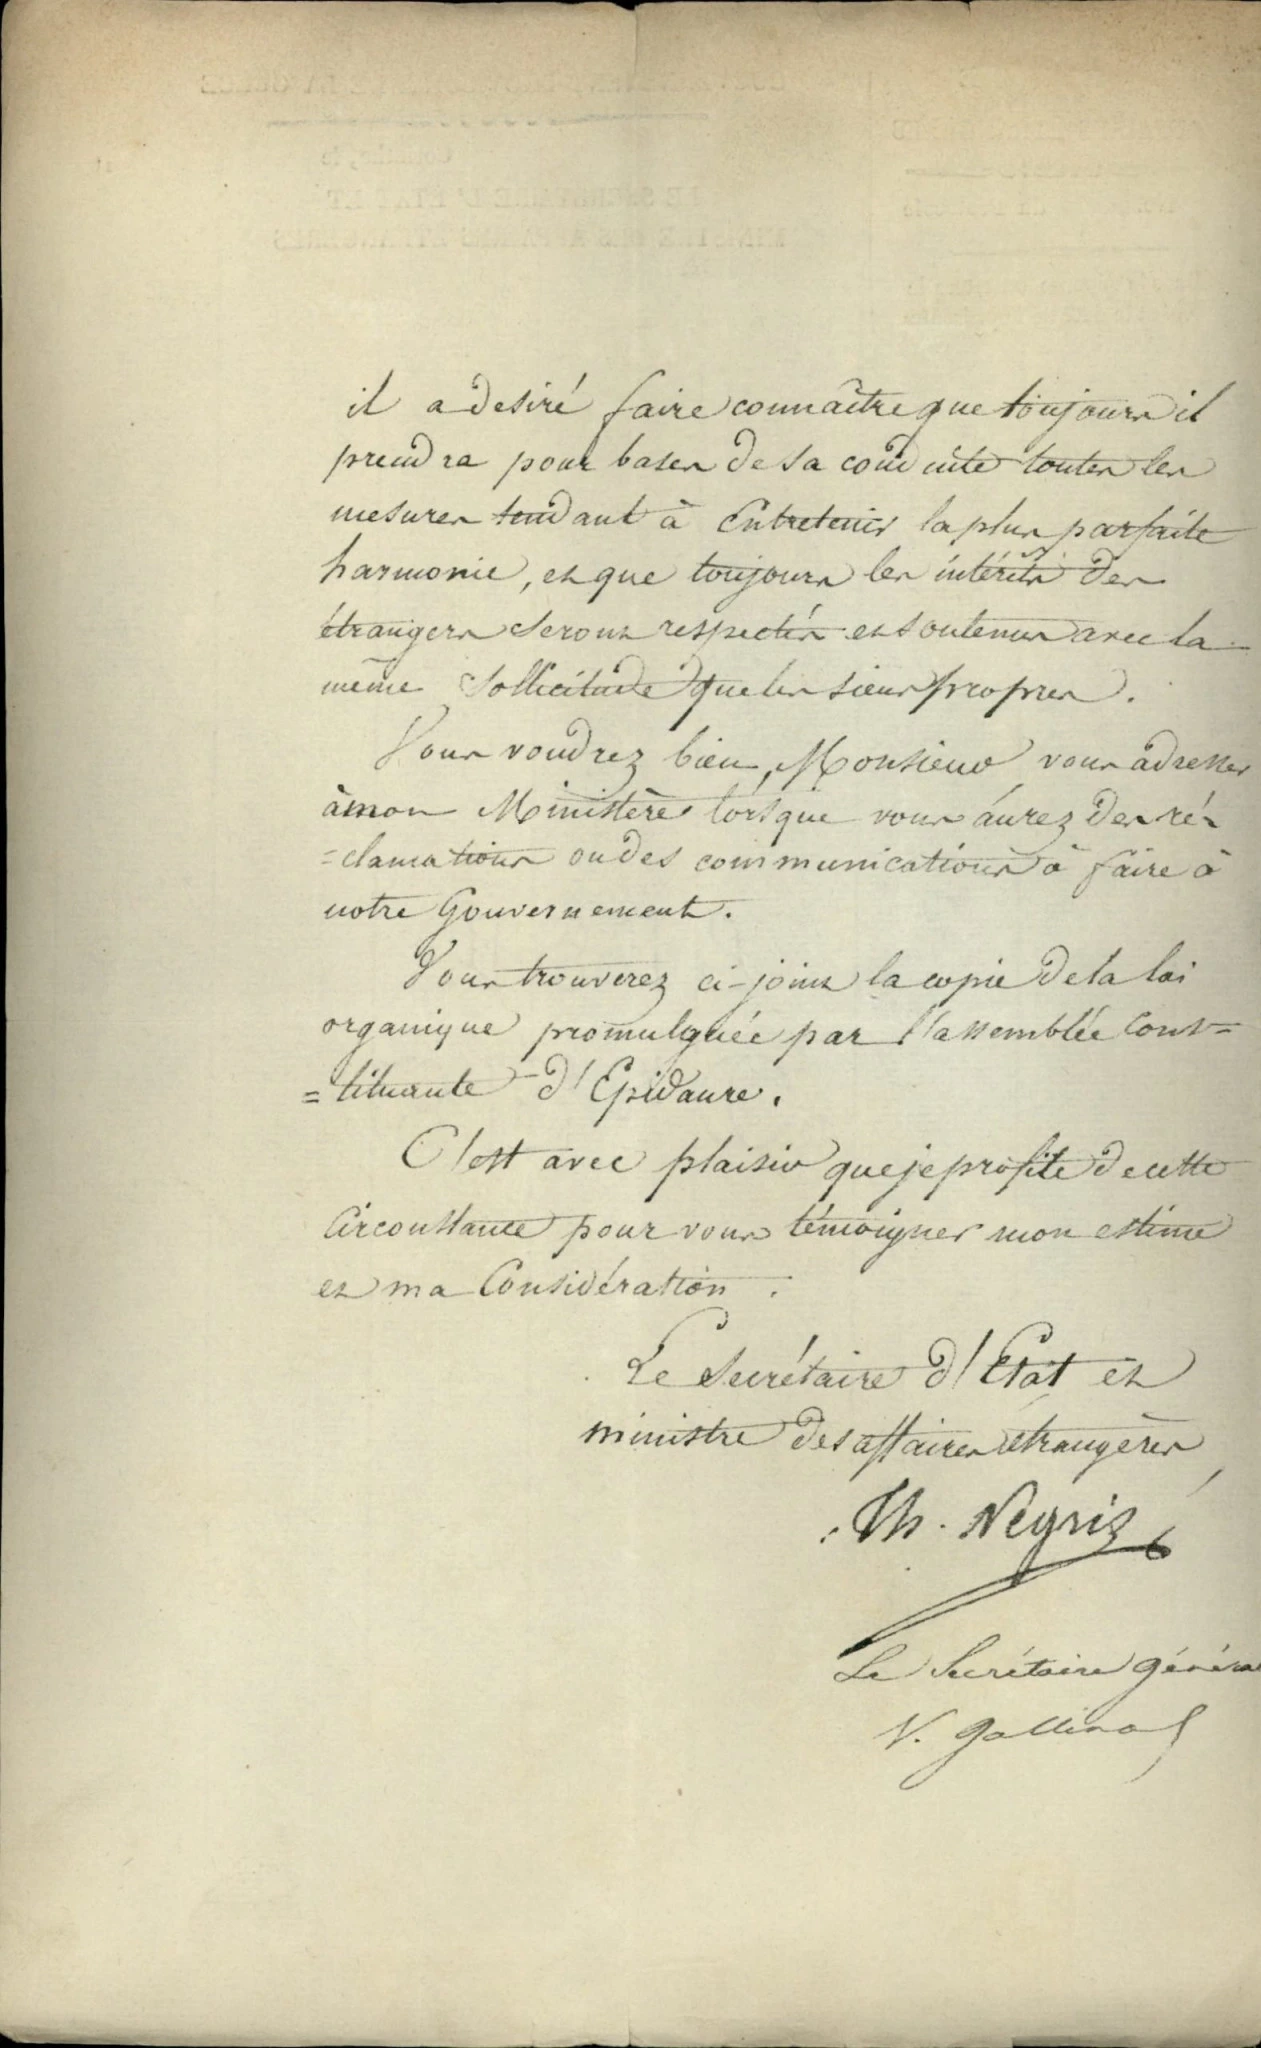 il a desiré faire connaître que toujours il
prendra pour bases de sa conduite toutes les
mesures tendant à Entretenir la plus parfaite
harmonie, et que toujours les intérêts des
étrangers seront respectés et soutenus avec la
même sollicitude que les siens propres.
Vous voudrez bien, Monsieur vous adresser
à mon Ministère lorsque vous aurez des ré-
=clamations ou des communications à faire à
notre Gouvernement.
Vous trouverez ci-joint la copie de la loi
organique promulguée par l'assemblée Cons=
=tituante d'Epidaure.
C'est avec plaisir que je profite de cette
Circonstance pour vous témoigner mon estime
et ma Considération.
Le Secrétaire d'Etat et
ministre des affaires étrangères
Th. Negris
Le Secrétaire généra
V. Gallina